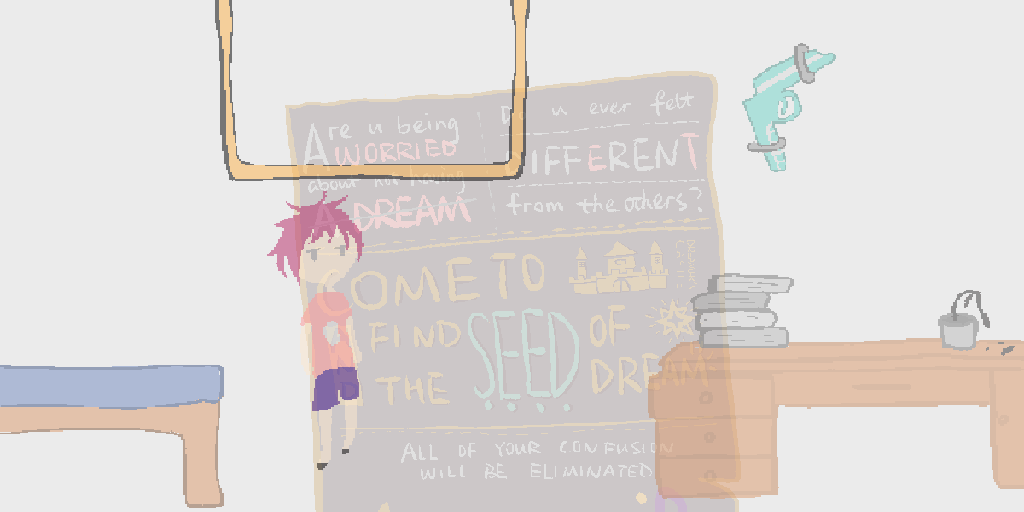 Are u being
WORRIED
about not having
A DREAM
u ever felt
DIFFERENT
from the others?
COME TO
FIND SEED OF
THE DREAM
ALL OF YOUR CONFUSION
WILL BE ELIMINATED